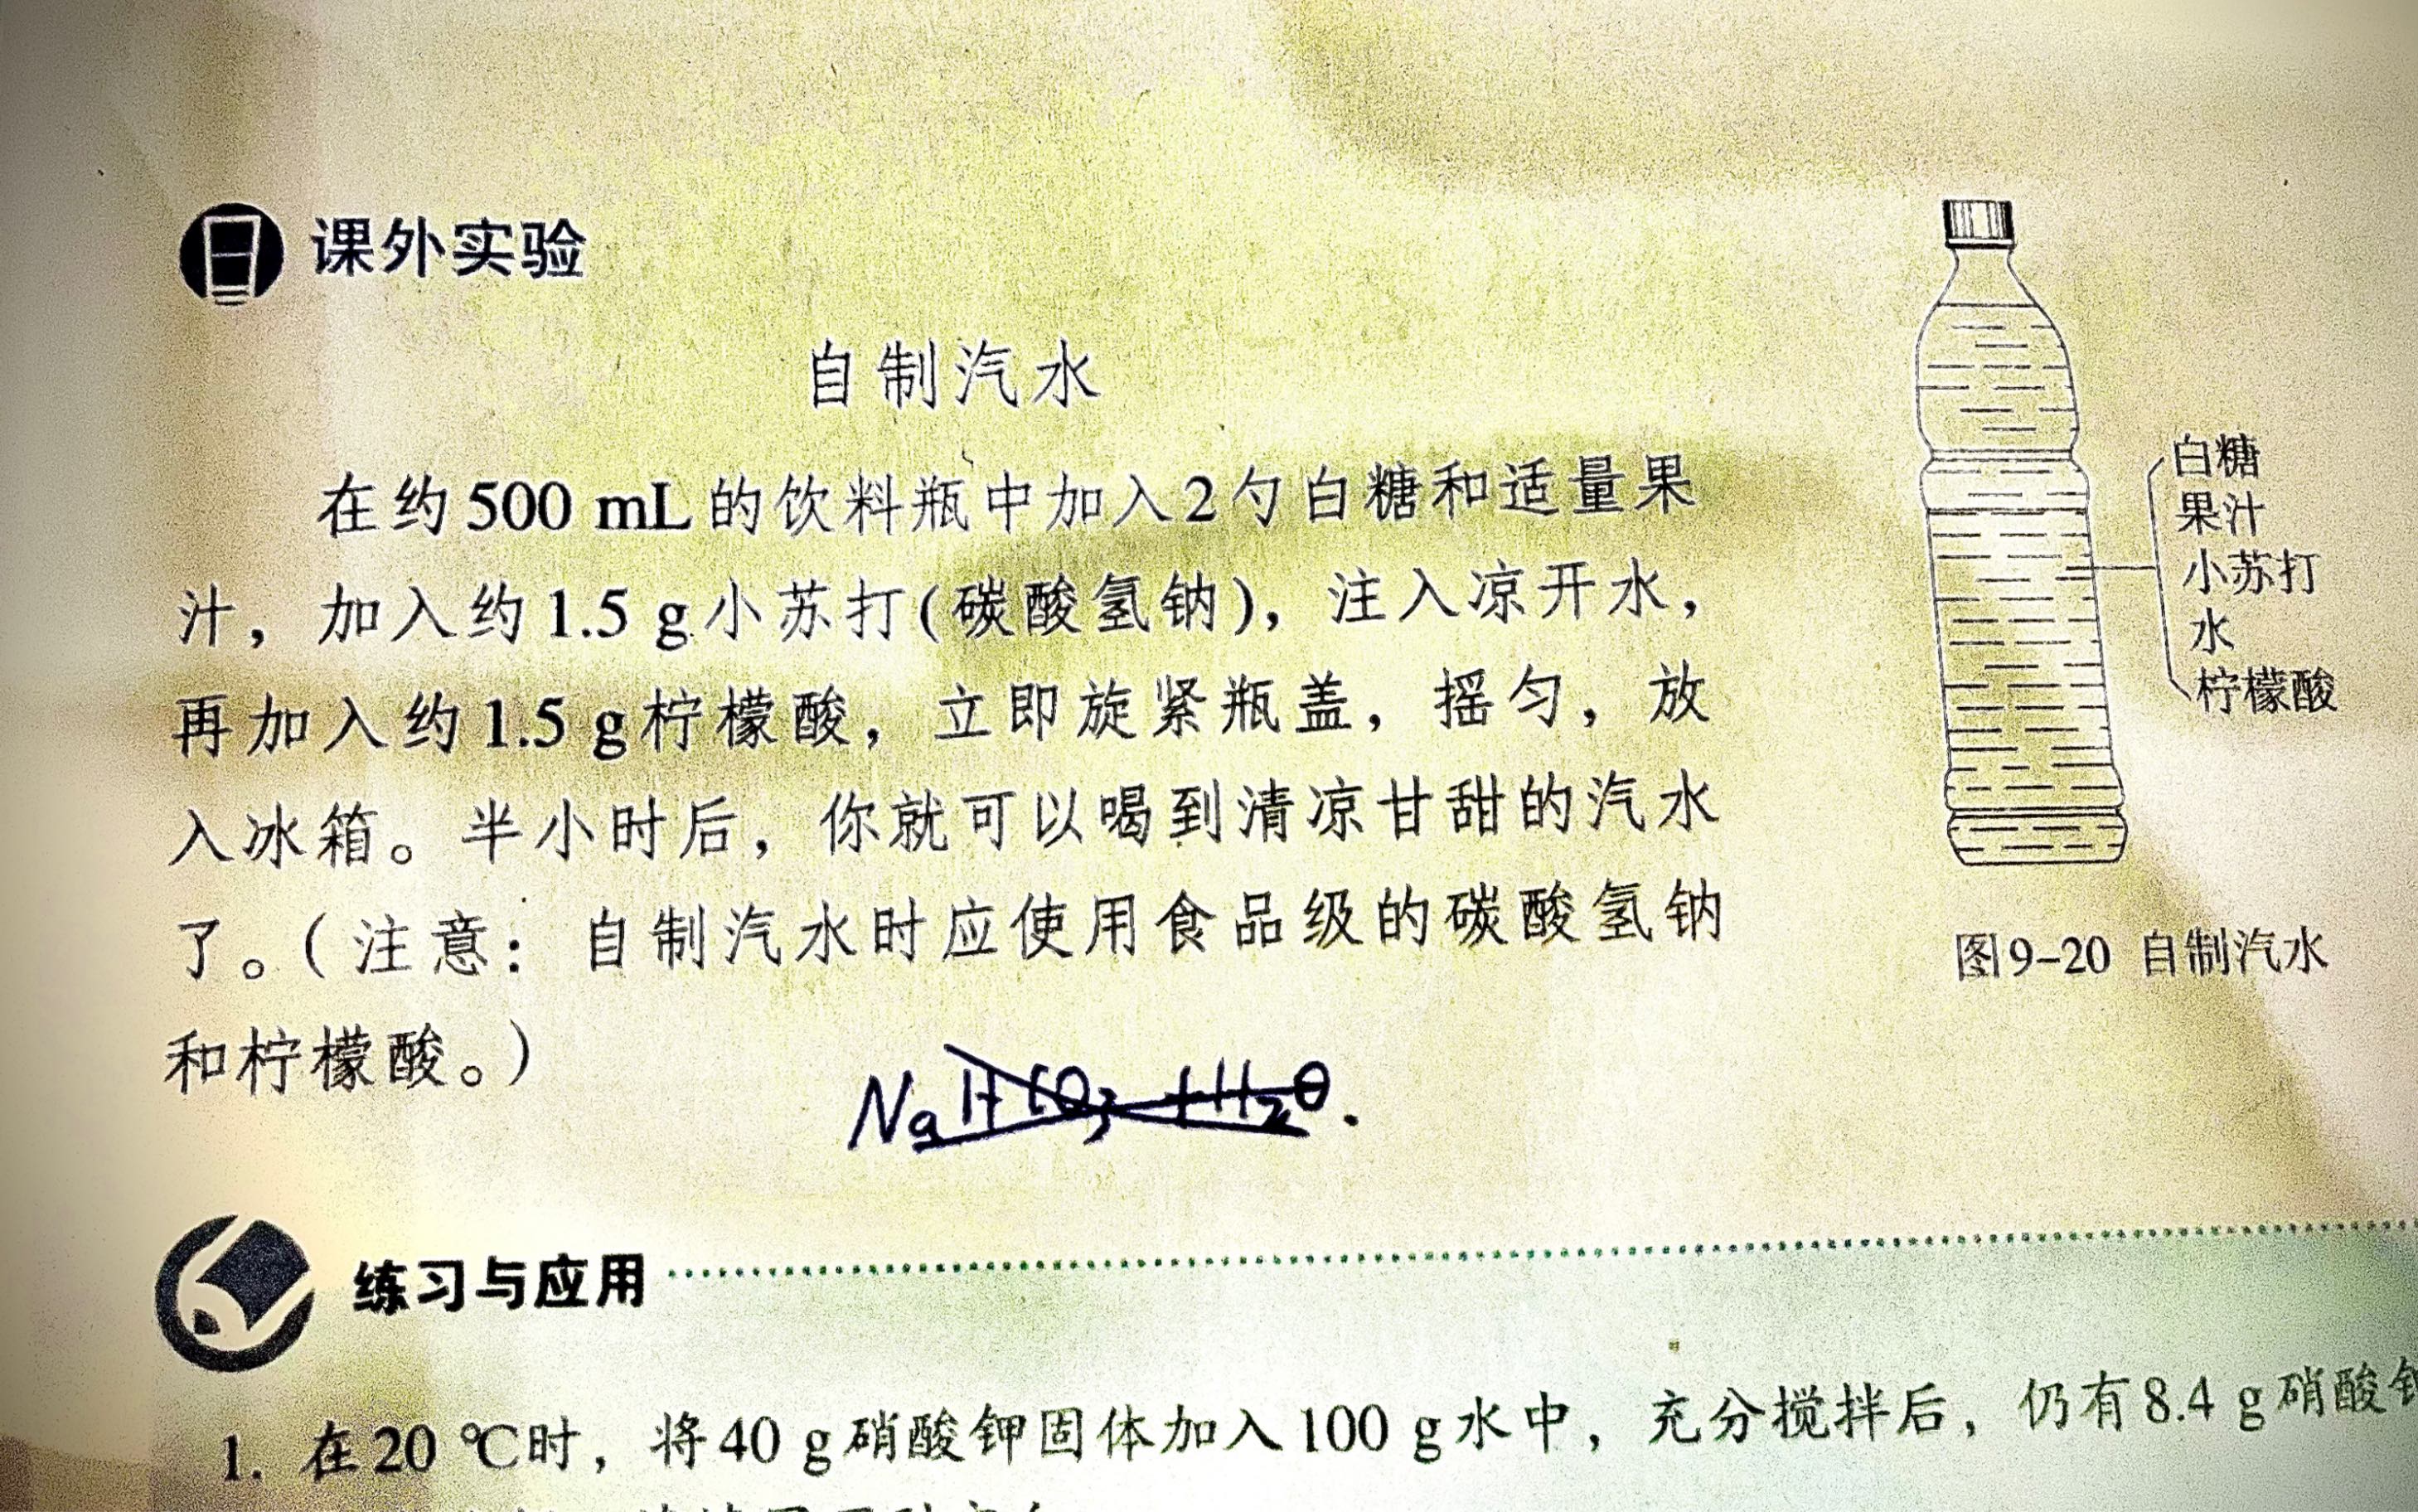 课外实验
自制汽水
在约500 mL的饮料瓶中加入2勺白糖和适量果
汁，加入约1.5 g小苏打(碳酸氢钠)，注入凉开水，
再加入约1.5 g柠檬酸，立即旋紧瓶盖，摇匀，放
入冰箱。半小时后，你就可以喝到清凉甘甜的汽水
了。(注意：自制汽水时应使用食品级的碳酸氢钠
和柠檬酸。)
白糖
果汁
小苏打
水
柠檬酸
图9-20 自制汽水
NaHCO₃ + H₂O.
练习与应用
1. 在20 ℃时，将40 g硝酸钾固体加入100 g水中，充分搅拌后，仍有8.4 g硝酸